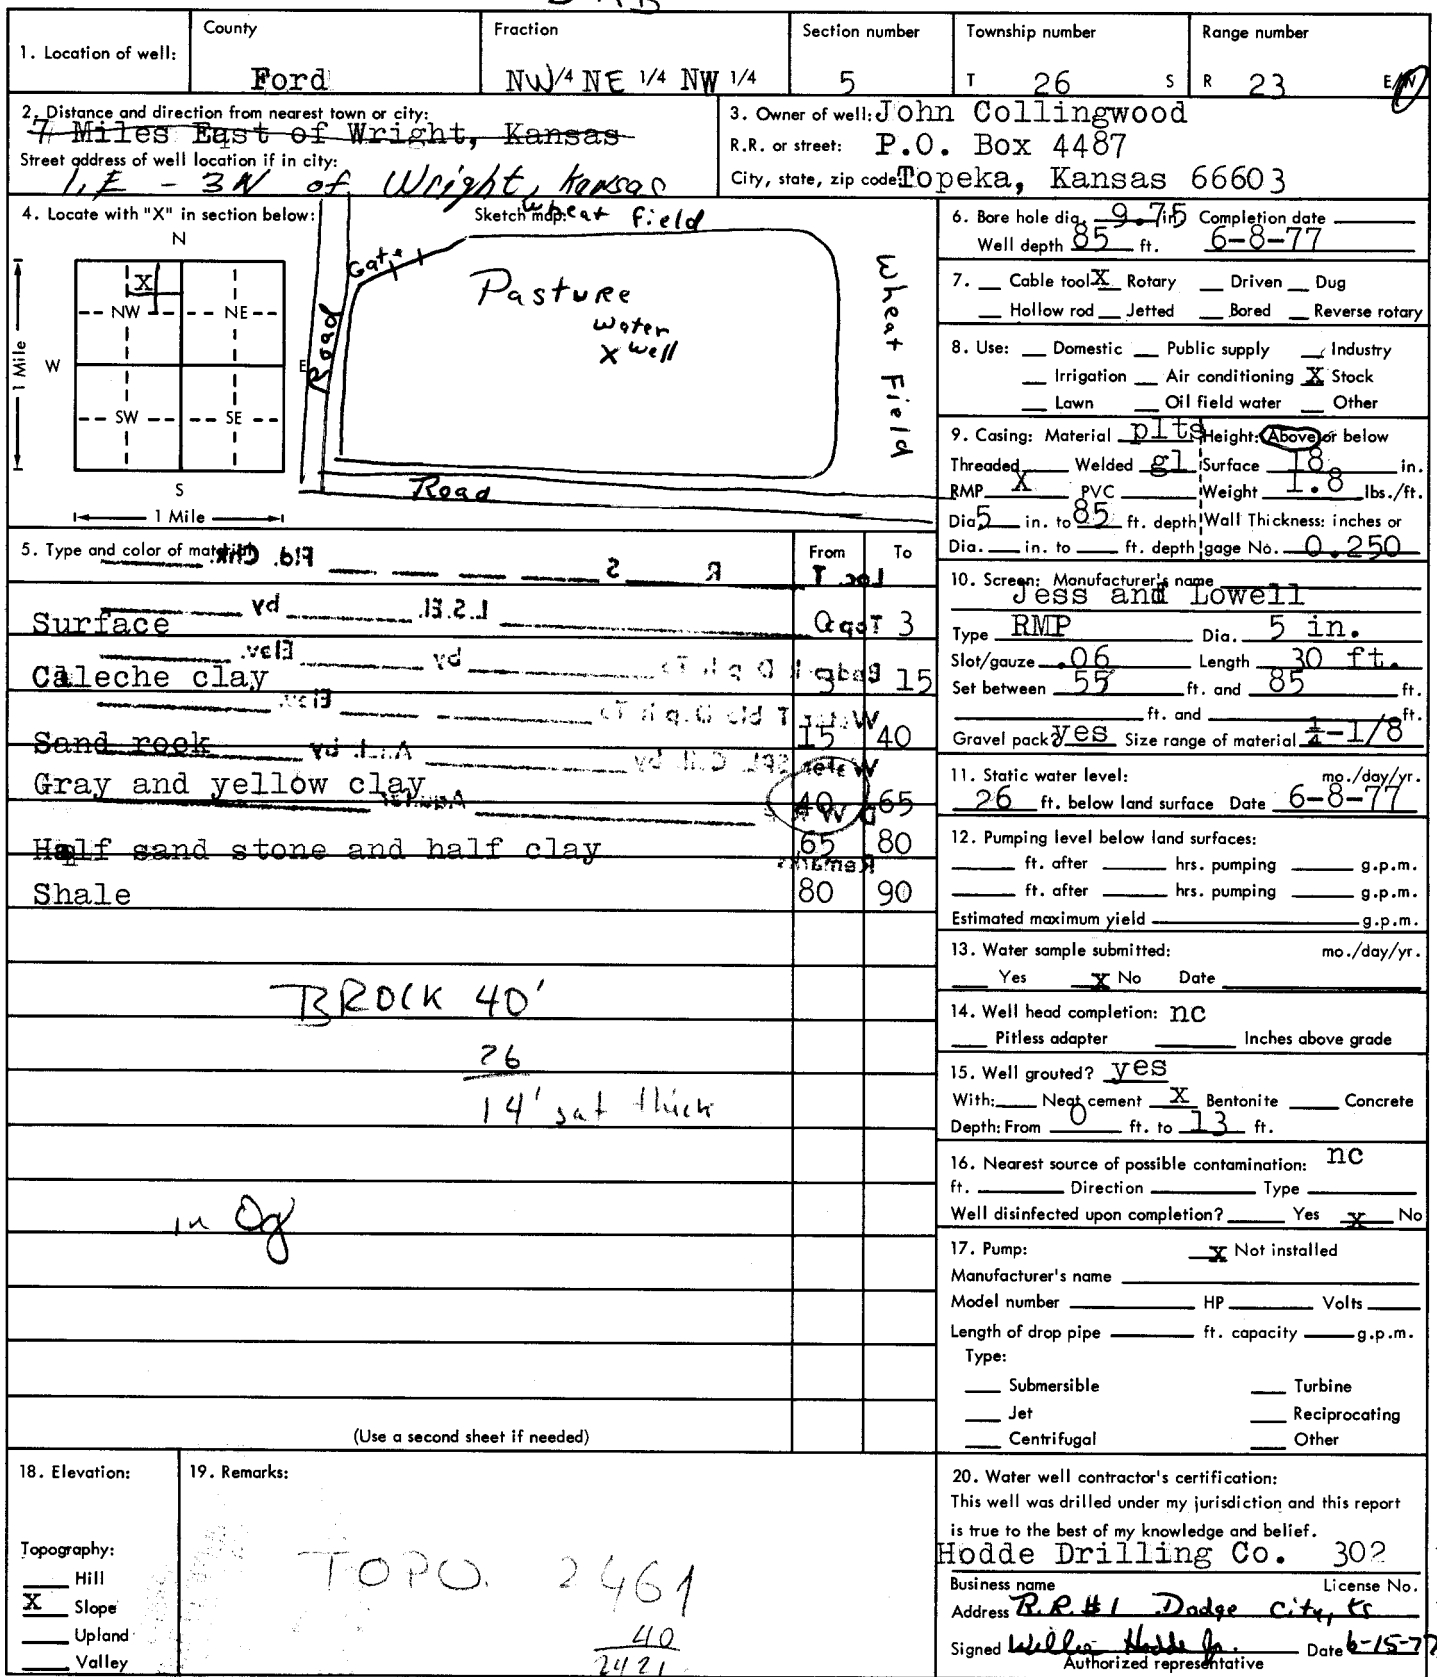 1. Location of well: County Fraction Section number Township number Range number
Ford NW 1/4 NE 1/4 NW 1/4 5 T 26 S R 23 E/W
2. Distance and direction from nearest town or city:
7 Miles East of Wright, Kansas
Street address of well location if in city:
1,E - 3N of Wright, Kansas
3. Owner of well: John Collingwood
R.R. or street: P.O. Box 4487
City, state, zip code: Topeka, Kansas 66603
4. Locate with "X" in section below:
N
X
NW NE
W E
SW SE
S
1 Mile
1 Mile
Sketch map:
Wheat Field
Gate
Pasture
Water
X Well
Wheat Field
Road
Road
5. Type and color of material From To
Fld. Chk.
R S Loc. T
L.S.El. by Topo
Surface 0 3
Elev. by
Caleche clay 3 15
Elev.
Sand rock 15 40
Gray and yellow clay 40 65
Half sand stone and half clay 65 80
Remarks
Shale 80 90
BROCK 40'
26
14' sat thick
in Og
(Use a second sheet if needed)
6. Bore hole dia. 9.75 in. Completion date
Well depth 85 ft. 6-8-77
7. Cable tool X Rotary Driven Dug
Hollow rod Jetted Bored Reverse rotary
8. Use: Domestic Public supply Industry
Irrigation Air conditioning X Stock
Lawn Oil field water Other
9. Casing: Material plts Height: Above or below
Threaded Welded gl Surface 18 in.
RMP X PVC Weight 1.8 lbs./ft.
Dia 5 in. to 85 ft. depth Wall Thickness: inches or
Dia. in. to ft. depth gage No. 0.250
10. Screen: Manufacturer's name
Jess and Lowell
Type RMP Dia. 5 in.
Slot/gauze .06 Length 30 ft.
Set between 55 ft. and 85 ft.
ft. and ft.
Gravel pack? yes Size range of material ¼-1/8
11. Static water level: mo./day/yr.
26 ft. below land surface Date 6-8-77
12. Pumping level below land surfaces:
ft. after hrs. pumping g.p.m.
ft. after hrs. pumping g.p.m.
Estimated maximum yield g.p.m.
13. Water sample submitted: mo./day/yr.
Yes X No Date
14. Well head completion: nc
Pitless adapter Inches above grade
15. Well grouted? yes
With: Neat cement X Bentonite Concrete
Depth: From 0 ft. to 13 ft.
16. Nearest source of possible contamination: nc
ft. Direction Type
Well disinfected upon completion? Yes X No
17. Pump: X Not installed
Manufacturer's name
Model number HP Volts
Length of drop pipe ft. capacity g.p.m.
Type:
Submersible Turbine
Jet Reciprocating
Centrifugal Other
18. Elevation:
Topography:
Hill
X Slope
Upland
Valley
19. Remarks:
TOPO. 2461
40
2421
20. Water well contractor's certification:
This well was drilled under my jurisdiction and this report
is true to the best of my knowledge and belief.
Hodde Drilling Co. 302
Business name License No.
Address R.R.#1 Dodge City, Ks
Signed Willie Hodde Jr. Date 6-15-77
Authorized representative